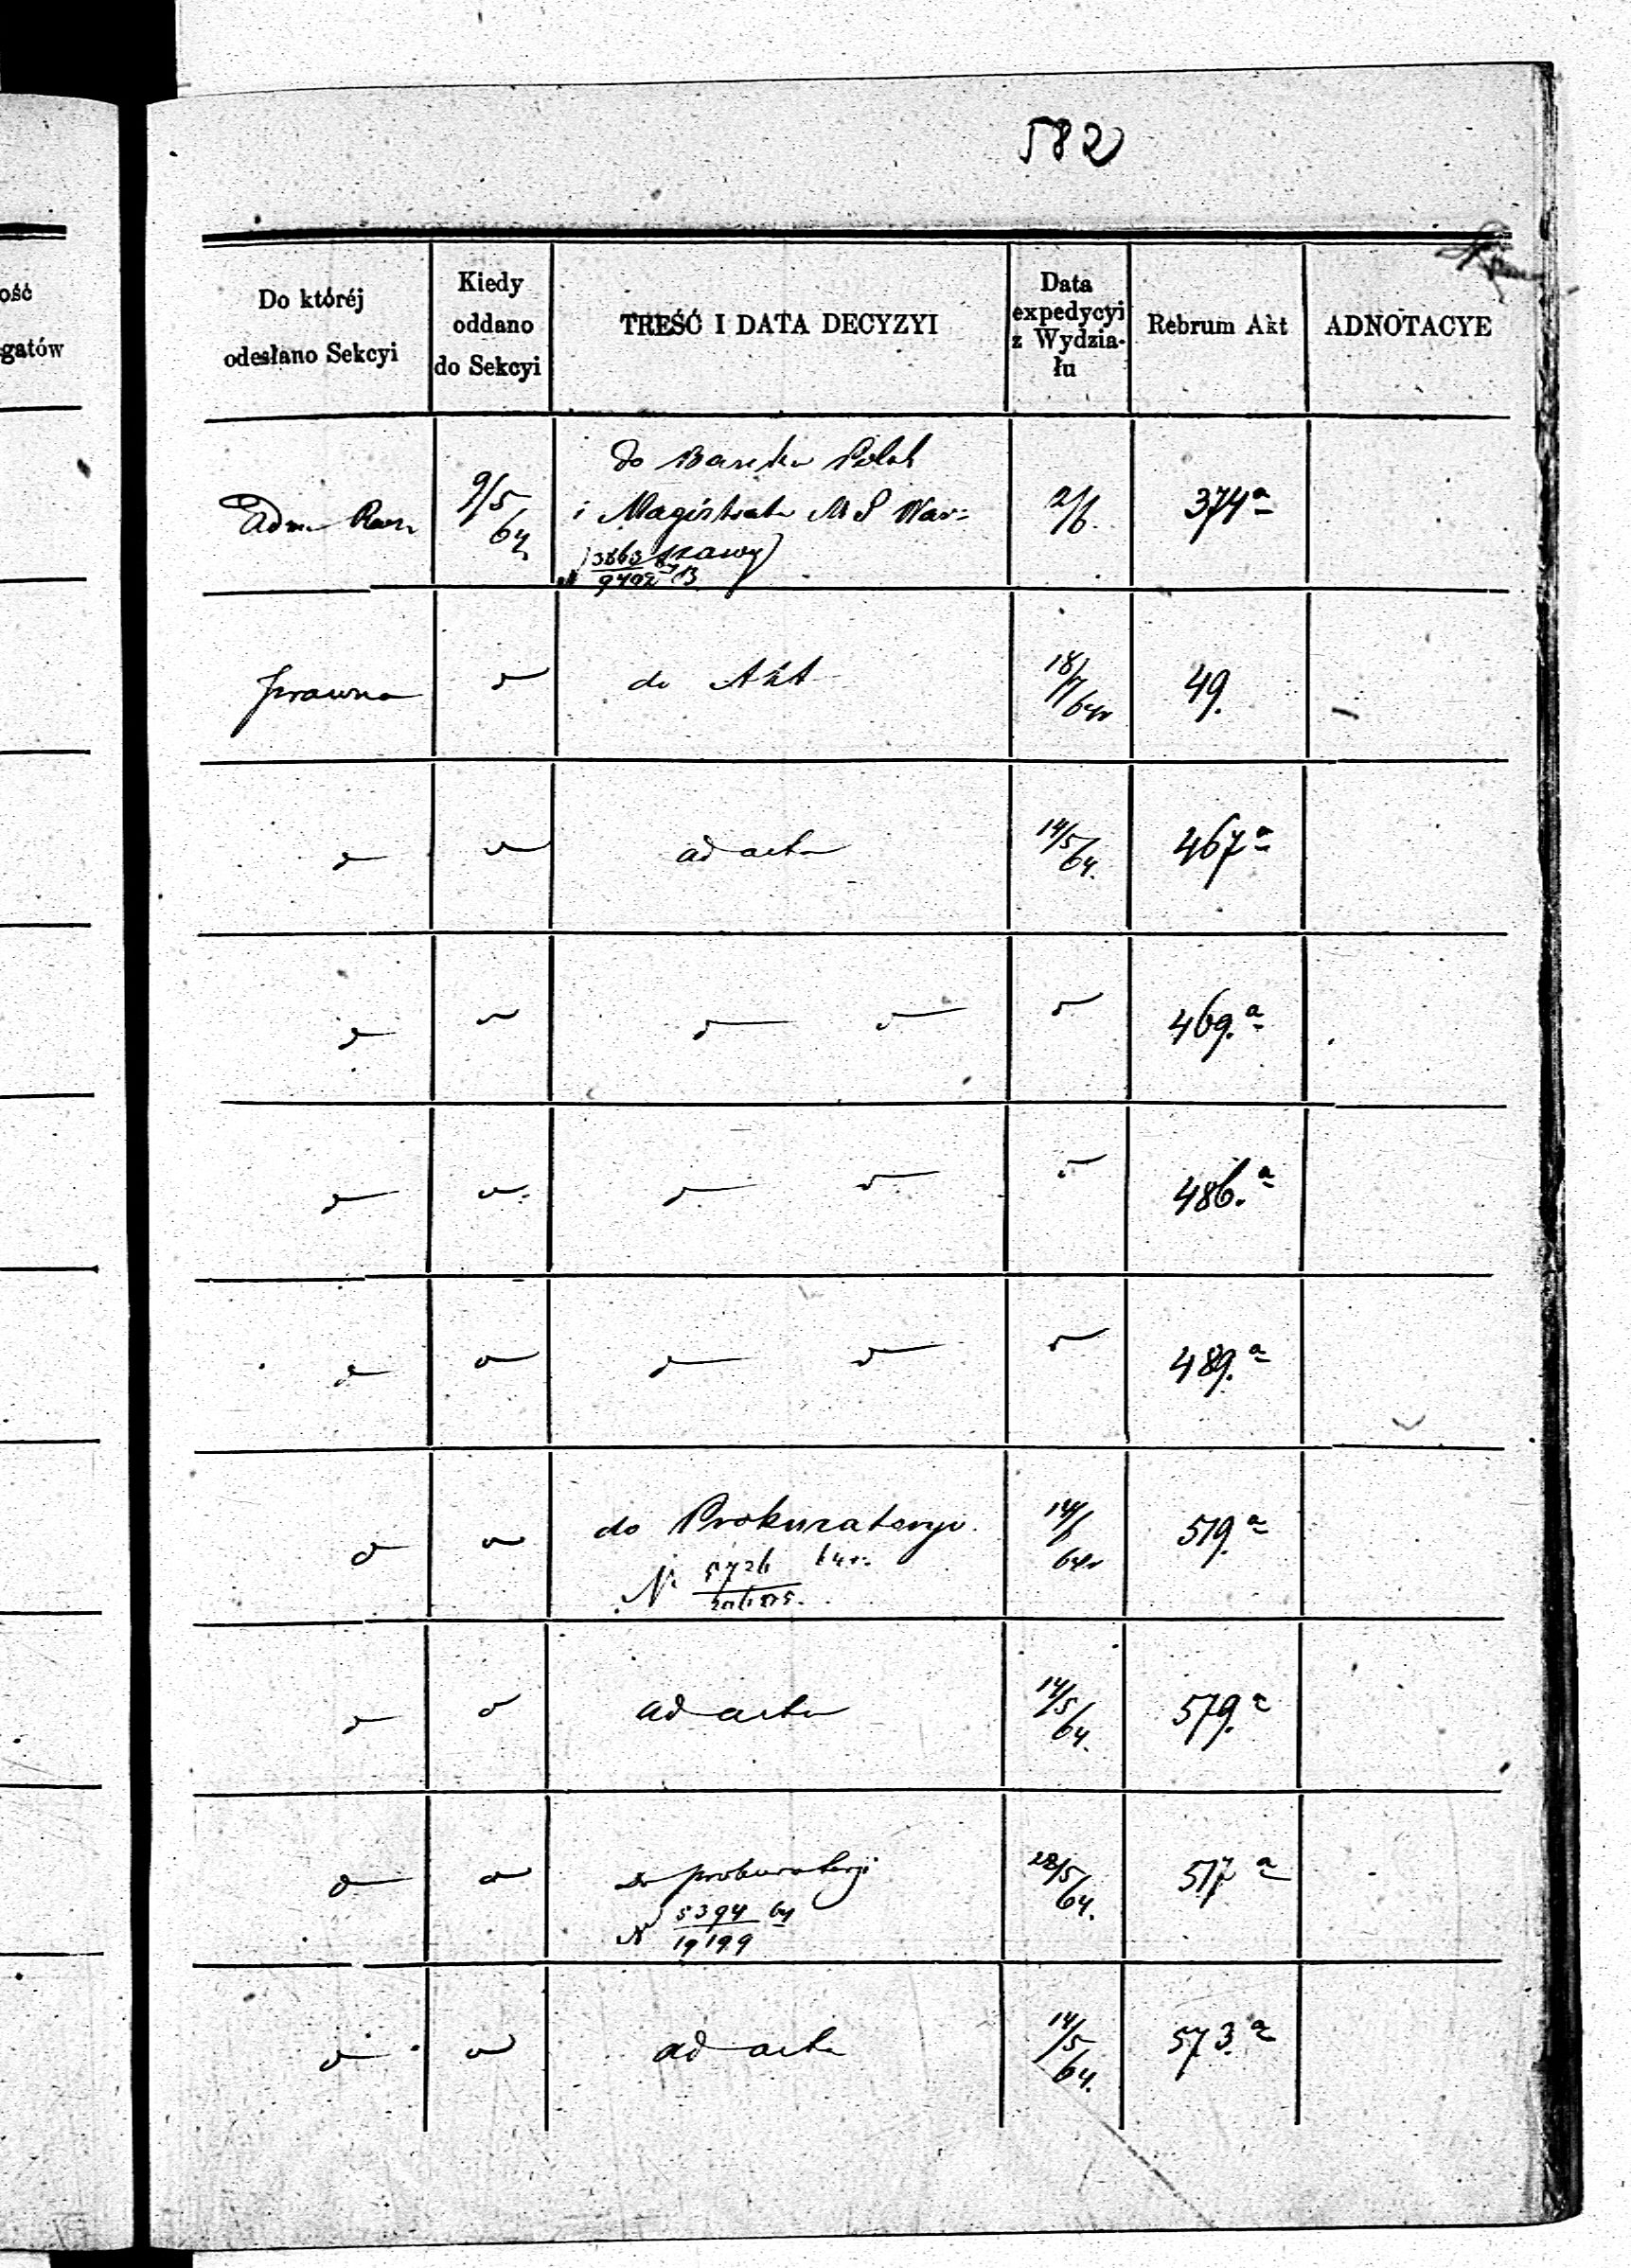 582
ość
gatów
Do któréj
odesłano Sekcyi
Kiedy
oddano
do Sekcyi
TREŚĆ I DATA DECYZYI
Data
expedycyi
z Wydzia-
łu
Rebrum Akt
ADNOTACYE
Adm
9/5 64
do Banku Polsk
i Magistratu M S War=
szawy
2/6.
374a
prawna
do Akt
18/7/64r
49.
ad acta
14/5/64.
467a
469.a
486.a
489.a
do Prokuratoryi.
N 5726 64r.
14/6 64r
519.a
ad acta
14/5/64.
579.a
do prokuratoryi
N 5394 64
19199
28/5/64.
517a
ad acta
14/5/64.
573.a